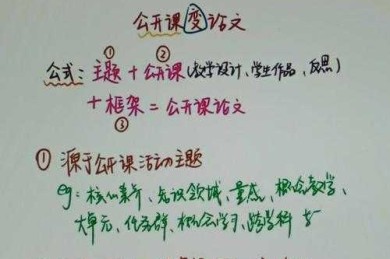 公开课变论文
① ②
公式：主题＋公开课（教学设计、学生作品、反思）
＋框架＝公开课论文
③
① 源于公开课活动主题
eg：核心素养、知识领域、量感、概念教学、
大单元、任务群、概念学习、跨学科